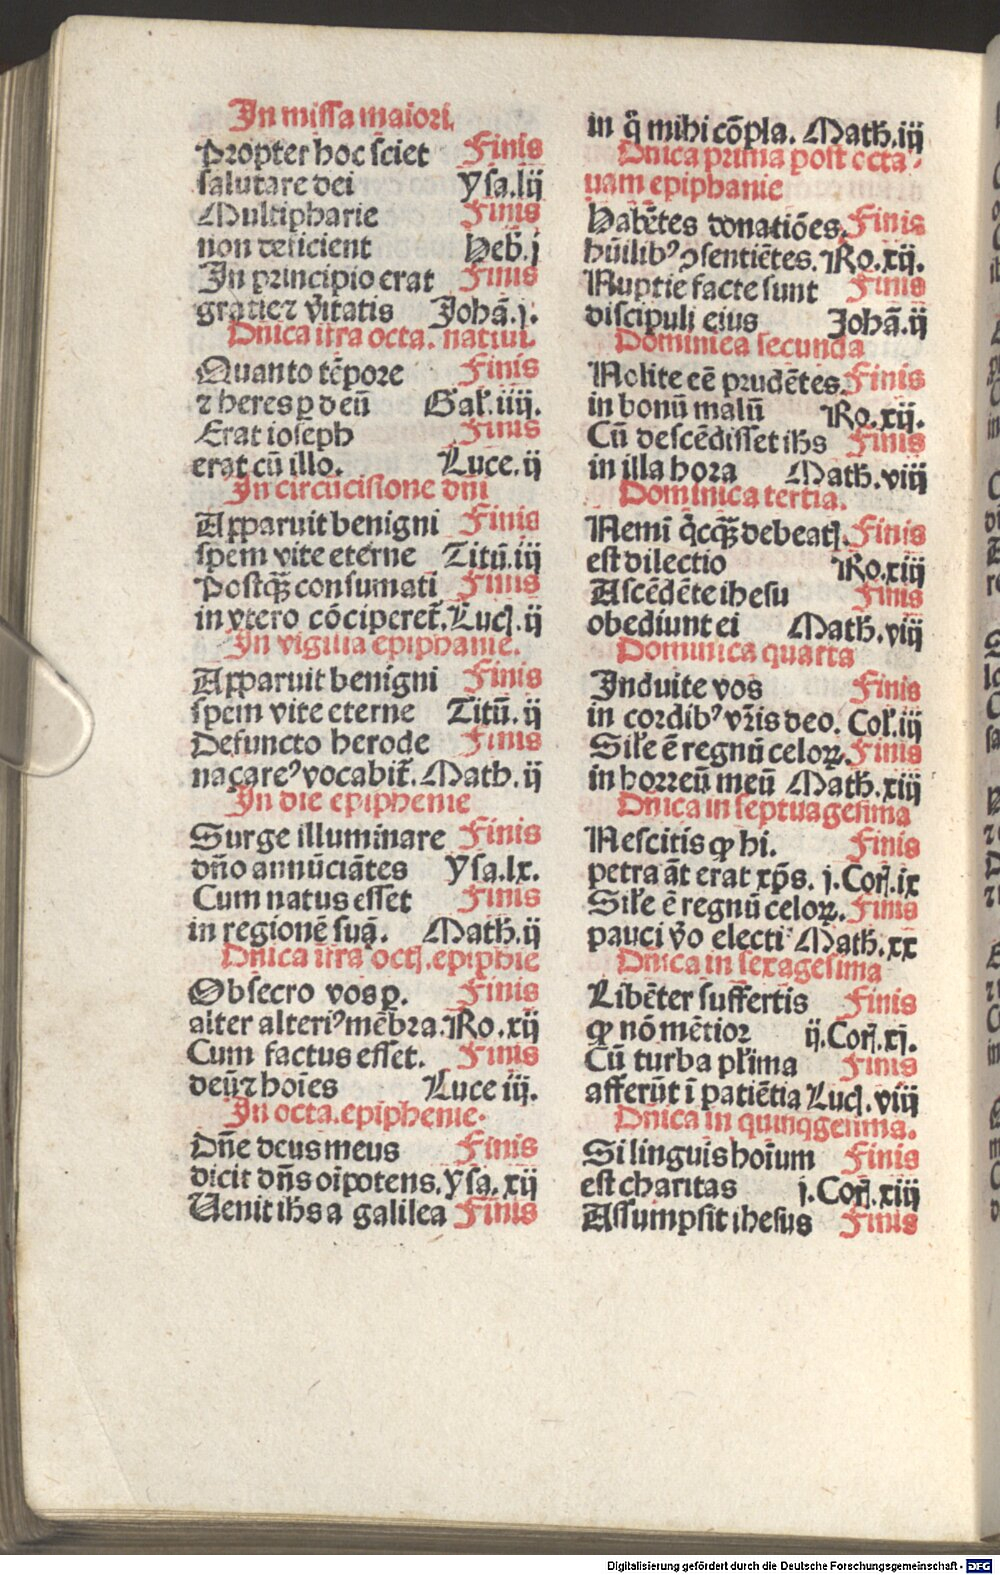 In missa maiori.
Propter hoc sciet Finis
salutare dei Ysa.lij
Multipharie Finis
non deficient Heb̄.j
In principio erat Finis
gratieꝛ v̄itatis Johā.j.
Dn̄ica īfra octa. natiui.
Quanto tēpore Finis
ꝛ heres ꝑ deū Gal̄.iiij.
Erat ioseph Finis
erat cū illo. Luce.ij
In circūcisione dn̄i
Apparuit benigni Finis
spem vite eterne Titū.iij
Postq̄ꝫ consumati Finis
in vtero cōciperet̄. Lucꝭ.ij
In vigilia epiphanie.
Apparuit benigni Finis
spem vite eterne Titū.ij
Defuncto herode Finis
naçareꝰ vocabit̄. Math.ij
In die epiphenie
Surge illuminare Finis
dn̄o annūciātes Ysa.lx.
Cum natus esset Finis
in regionē suā. Math̄.ij
Dn̄ica īfra octꝭ.epiphie
Obsecro vos ꝑ. Finis
alter alteriꝰ mēbra. Ro.xij
Cum factus esset. Finis
deūꝛ hoīes Luce iij.
In octa.epiphenie.
Dn̄e deus meus Finis
dicit dn̄s oīpotens. Ysa.xij
Uenit ih̄s a galilea Finis
in q̄ mihi cōpla. Math̄.iij
Dn̄ica prima post octa-
uam epiphanie
Habētes donatiōes. Finis
hūilibꝰ ꝯsentiētes. Ro.xij.
Nuptie facte sunt Finis
discipuli eius Johā.ij
Dominica secunda
Nolite eē prudētes. Finis
in bonū malū Ro.xij.
Cū descēdisset ih̄s Finis
in illa hora Math̄.viij
Dominica tertia.
Nemī q̄cq̄ꝫ debeatꝭ. Finis
est dilectio Ro.xiij
Ascēdēte ihesu Finis
obediunt ei Math̄.viij
Dominica quarta
Induite vos Finis
in cordibꝰ vr̄is deo. Col̄.iij
Sil̄e ē regnū celoꝝ. Finis
in horreū meū Math̄.xiij
Dn̄ica in septuagesima
Nescitis ꝙ hi. Finis
petra āt erat xp̄s. j.Corꝭ.ix
Sil̄e ē regnū celoꝝ. Finis
pauci v̄o electi Math̄.xx
Dn̄ica in sexagesima
Libēter suffertis Finis
ꝙ nō mētior ij.Corꝭ.xj.
Cū turba pl̄ima Finis
afferūt ī patiētia Lucꝭ.viij
Dn̄ica in quinqgesima.
Si linguis hoīum Finis
est charitas j.Corꝭ.xiij
Assumpsit ihesus Finis
Digitalisierung gefördert durch die Deutsche Forschungsgemeinschaft - DFG